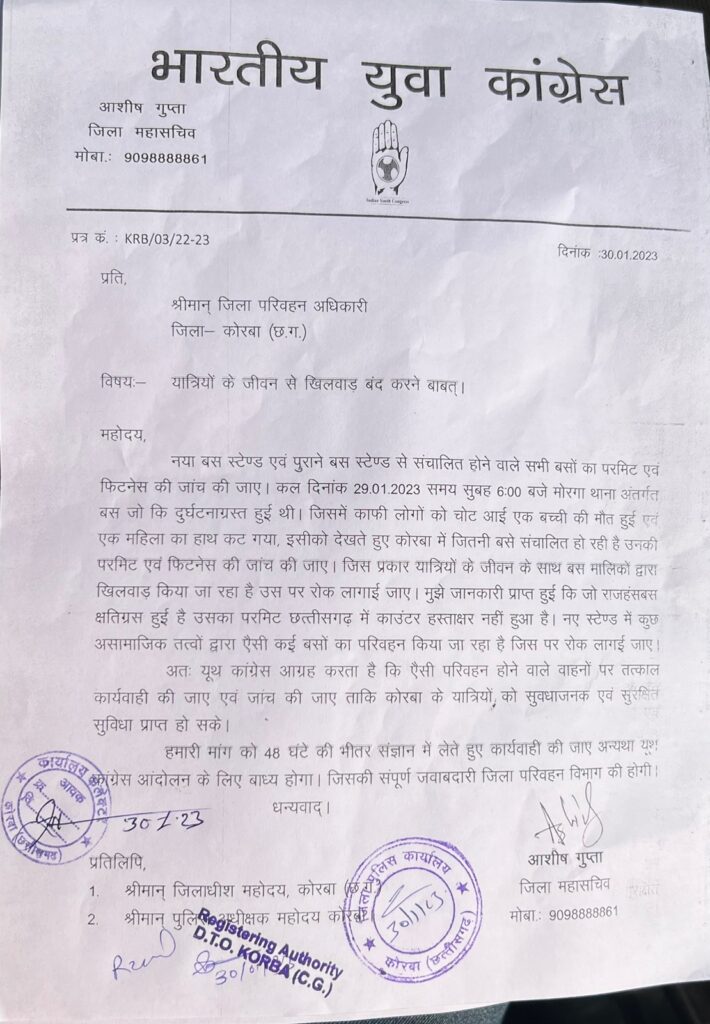 भारतीय युवा कांग्रेस
आशीष गुप्ता
जिला महासचिव
मोबा.: 9098888861
Indian Youth Congress
प्रत्र कं. : KRB/03/22-23
दिनांक :30.01.2023
प्रति,
श्रीमान् जिला परिवहन अधिकारी
जिला– कोरबा (छ.ग.)
विषयः– यात्रियों के जीवन से खिलवाड़ बंद करने बाबत्।
महोदय,
नया बस स्टेण्ड एवं पुराने बस स्टेण्ड से संचालित होने वाले सभी बसों का परमिट एवं
फिटनेस की जांच की जाए। कल दिनांक 29.01.2023 समय सुबह 6:00 बजे मोरगा थाना अंतर्गत
बस जो कि दुर्घटनाग्रस्त हुई थी। जिसमें काफी लोगों को चोट आई एक बच्ची की मौत हुई एवं
एक महिला का हाथ कट गया, इसीको देखते हुए कोरबा में जितनी बसे संचालित हो रही है उनकी
परमिट एवं फिटनेस की जांच की जाए। जिस प्रकार यात्रियों के जीवन के साथ बस मालिकों द्वारा
खिलवाड़ किया जा रहा है उस पर रोक लागाई जाए। मुझे जानकारी प्राप्त हुई कि जो राजहंसबस
क्षतिग्रस हुई है उसका परमिट छत्तीसगढ़ में काउंटर हस्ताक्षर नहीं हुआ है। नए स्टेण्ड में कुछ
असामाजिक तत्वों द्वारा एैसी कई बसों का परिवहन किया जा रहा है जिस पर रोक लागई जाए।
अतः यूथ कांग्रेस आग्रह करता है कि एैसी परिवहन होने वाले वाहनों पर तत्काल
कार्यवाही की जाए एवं जांच की जाए ताकि कोरबा के यात्रियों को सुवधाजनक एवं सुरक्षित
सुविधा प्राप्त हो सके।
हमारी मांग को 48 घंटे की भीतर संज्ञान में लेते हुए कार्यवाही की जाए अन्यथा यूथ
कांग्रेस आंदोलन के लिए बाध्य होगा। जिसकी संपूर्ण जवाबदारी जिला परिवहन विभाग की होगी।
धन्यवाद।
कार्यालय कलेक्टर
आवक
कोरबा (छत्तीसगढ़)
30.1.23
आशीष गुप्ता
जिला महासचिव
मोबा.: 9098888861
प्रतिलिपि,
1. श्रीमान् जिलाधीश महोदय, कोरबा (छ.ग.
2. श्रीमान् पुलिस अधीक्षक महोदय कोरबा
जिला पुलिस कार्यालय
30/1/23
कोरबा (छत्तीसगढ़)
Registering Authority
D.T.O. KORBA (C.G.)